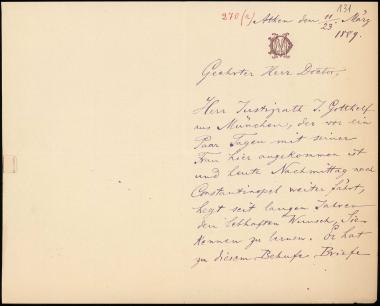 131
270(2) Athen den 11/23. März
1889.
Geehrter Herr Doctor,
Herr Justizrath J. Gotthelf
aus München, der vor ein
Paar Tagen mit seiner
Frau hier angekommen ist
und heute Nachmittag nach
Constantinopel weiter fährt,
hegt seit langen Jahren
den lebhaften Wunsch, Sie
kennen zu lernen. Er hat
zu diesem Behufe Briefe